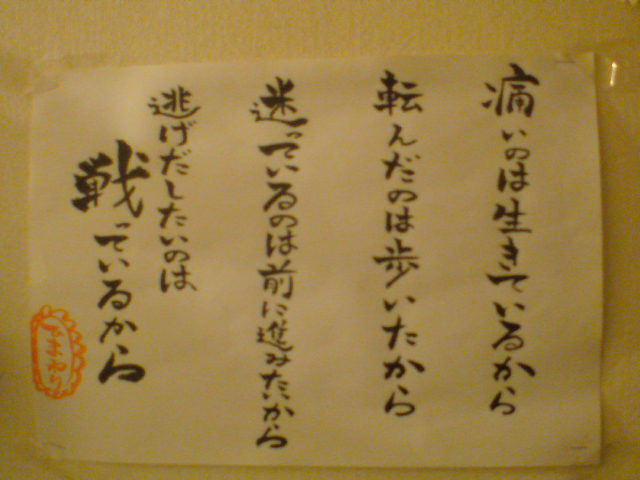 痛いのは生きているから
転んだのは歩いたから
迷っているのは前に進みたいから
逃げだしたいのは
戦っているから